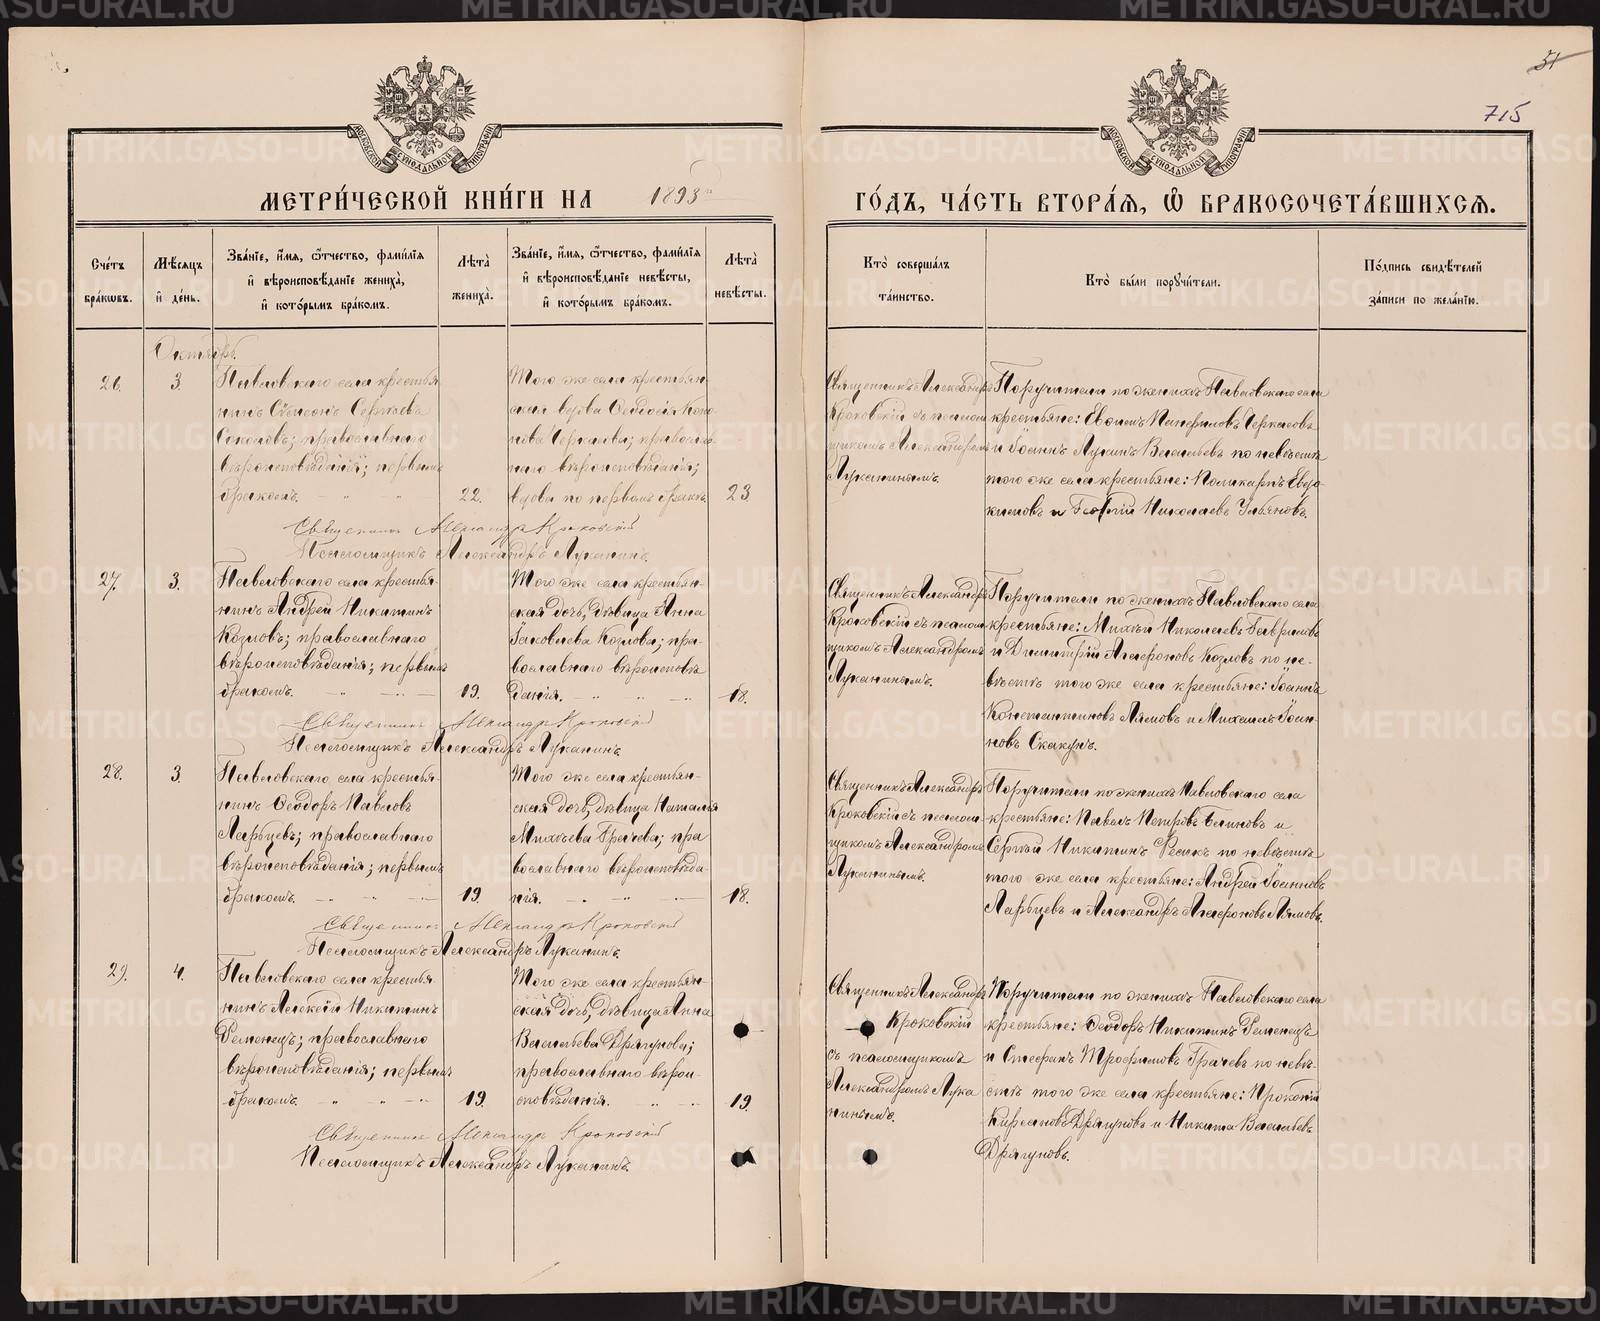 51
715
МОСКОВСКОЙ СѴНОДАЛЬНОЙ ТИПОГРАФІИ
МОСКОВСКОЙ СѴНОДАЛЬНОЙ ТИПОГРАФІИ
МЕТРИ́ЧЕСКОЙ КНИ́ГИ НА 1893й ГО́ДЪ, ЧА́СТЬ ВТОРА́Я, Ѽ БРАКОСОЧЕТА́ВШИХСЯ.
Сче́тъ бра́ковъ.
Мѣ́сяцъ и де́нь.
Зва́ніе, и́мя, ѻ́тчество, фами́лія
и вѣроисповѣ́даніе жениха̀,
и кото́рымъ бра́комъ.
Лѣта̀ жениха̀.
Зва́ніе, и́мя, ѻ́тчество, фами́лія
и вѣроисповѣ́даніе невѣ́сты,
и кото́рымъ бра́комъ.
Лѣта̀ невѣ́сты.
Кто̀ соверша́лъ
та́инство.
Кто̀ бы́ли поручи́тели.
По́дпись свидѣ́телей
за́писи по жела́нію.
Октябрь.
26.
3.
Павловскаго села крестья
нинъ Сѵмеонъ Сергѣевъ
Соколовъ; православнаго
вѣроисповѣданія; первымъ
бракомъ.
22.
Того же села крестьян
ская вдова Ѳеодосія Коно
нова Черкасова; православ
наго вѣроисповѣданія;
вдова по первомъ бракѣ.
23
Священникъ Александръ
Кроковскій съ псалом
щикомъ Александромъ
Луканинымъ.
Поручители по женихѣ Павловскаго села
крестьяне: Евѳимъ Панфиловъ Черкасовъ
и Іоаннъ Лукинъ Васильевъ по невѣстѣ
того же села крестьяне: Поликарпъ Евдо
кимовъ и Георгій Николаевъ Ульяновъ.
Священникъ Александръ Кроковскій
Псаломщикъ Александръ Луканинъ.
27.
3.
Павловскаго села крестья-
нинъ Андрей Никитинъ
Козловъ; православнаго
вѣроисповѣданія; первымъ
бракомъ.
19.
Того же села крестьян-
ская дочь, дѣвица Анна
Іаковлева Козлова; пра-
вославнаго вѣроисповѣ
данія.
18.
Священникъ Александръ
Кроковскій съ псалом
щикомъ Александромъ
Луканинымъ.
Поручители по женихѣ Павловскаго села
крестьяне: Михѣй Николаевъ Гавриловъ
и Димитрій Агафоновъ Козловъ по не-
вѣстѣ того же села крестьяне: Іоаннъ
Константиновъ Лямовъ и Михаилъ Іоан-
новъ Скакунъ.
Священникъ Александръ Кроковскій
Псаломщикъ Александръ Луканинъ.
28.
3.
Павловскаго села крестья-
нинъ Ѳеодоръ Павловъ
Ларьцевъ; православнаго
вѣроисповѣданія; первымъ
бракомъ.
19.
Того же села крестьян-
ская дочь, дѣвица Наталья
Михѣева Грачева; пра
вославнаго вѣроисповѣда
нія.
18.
Священникъ Александръ
Кроковскій съ псалом
щикомъ Александромъ
Луканинымъ.
Поручители по женихѣ Павловскаго села
крестьяне: Павелъ Петровъ Блиновъ и
Сергѣй Никитинъ по невѣстѣ
того же села крестьяне: Андрей Іоанновъ
Ларьцевъ и Александръ Агафоновъ Лямовъ.
Священникъ Александръ Кроковскій
Псаломщикъ Александръ Луканинъ.
29.
4.
Павловскаго села крестья
нинъ Алексѣй Никитинъ
Ременецъ; православнаго
вѣроисповѣданія; первымъ
бракомъ.
19.
Того же села крестьян-
ская дочь, дѣвица Анна
Васильева Драгунова;
православнаго вѣрои-
сповѣданія.
19.
Священникъ Александръ
Кроковскій
съ псаломщикомъ
Александромъ Лука
нинымъ.
Поручители по женихѣ Павловскаго села
крестьяне: Ѳеодоръ Никитинъ Ременецъ
и Стефанъ Трофимовъ Грачевъ по невѣ-
стѣ того же села крестьяне: Прокопій
Кирсановъ Драгуновъ и Никита Васильевъ
Драгуновъ.
Священникъ Александръ Кроковскій
Псаломщикъ Александръ Луканинъ.
METRIKI.GASO-URAL.RU